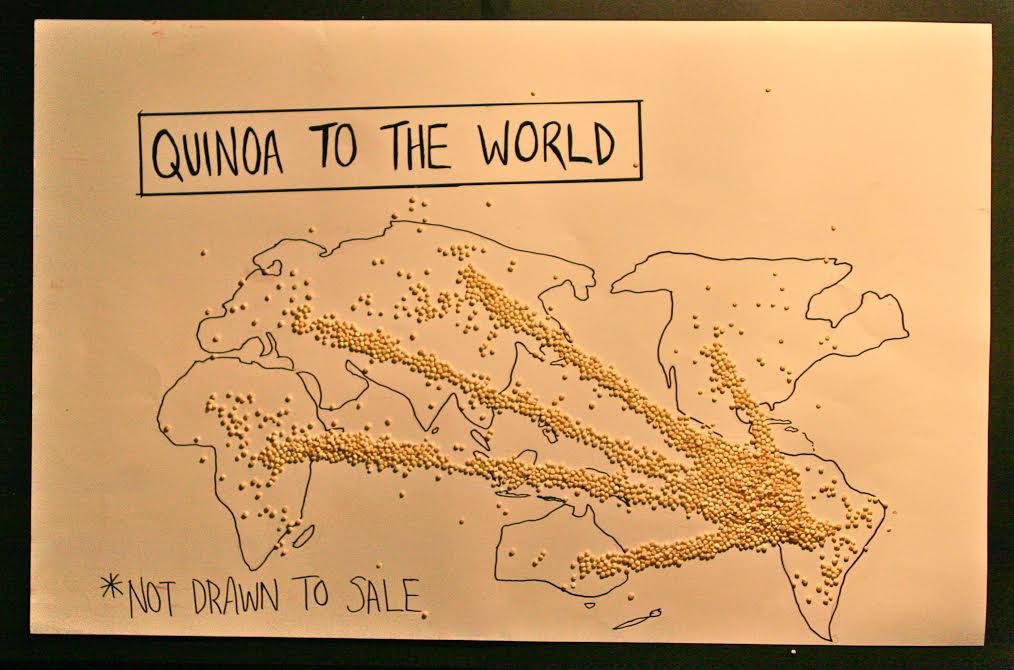 QUINOA TO THE WORLD
*NOT DRAWN TO SALE